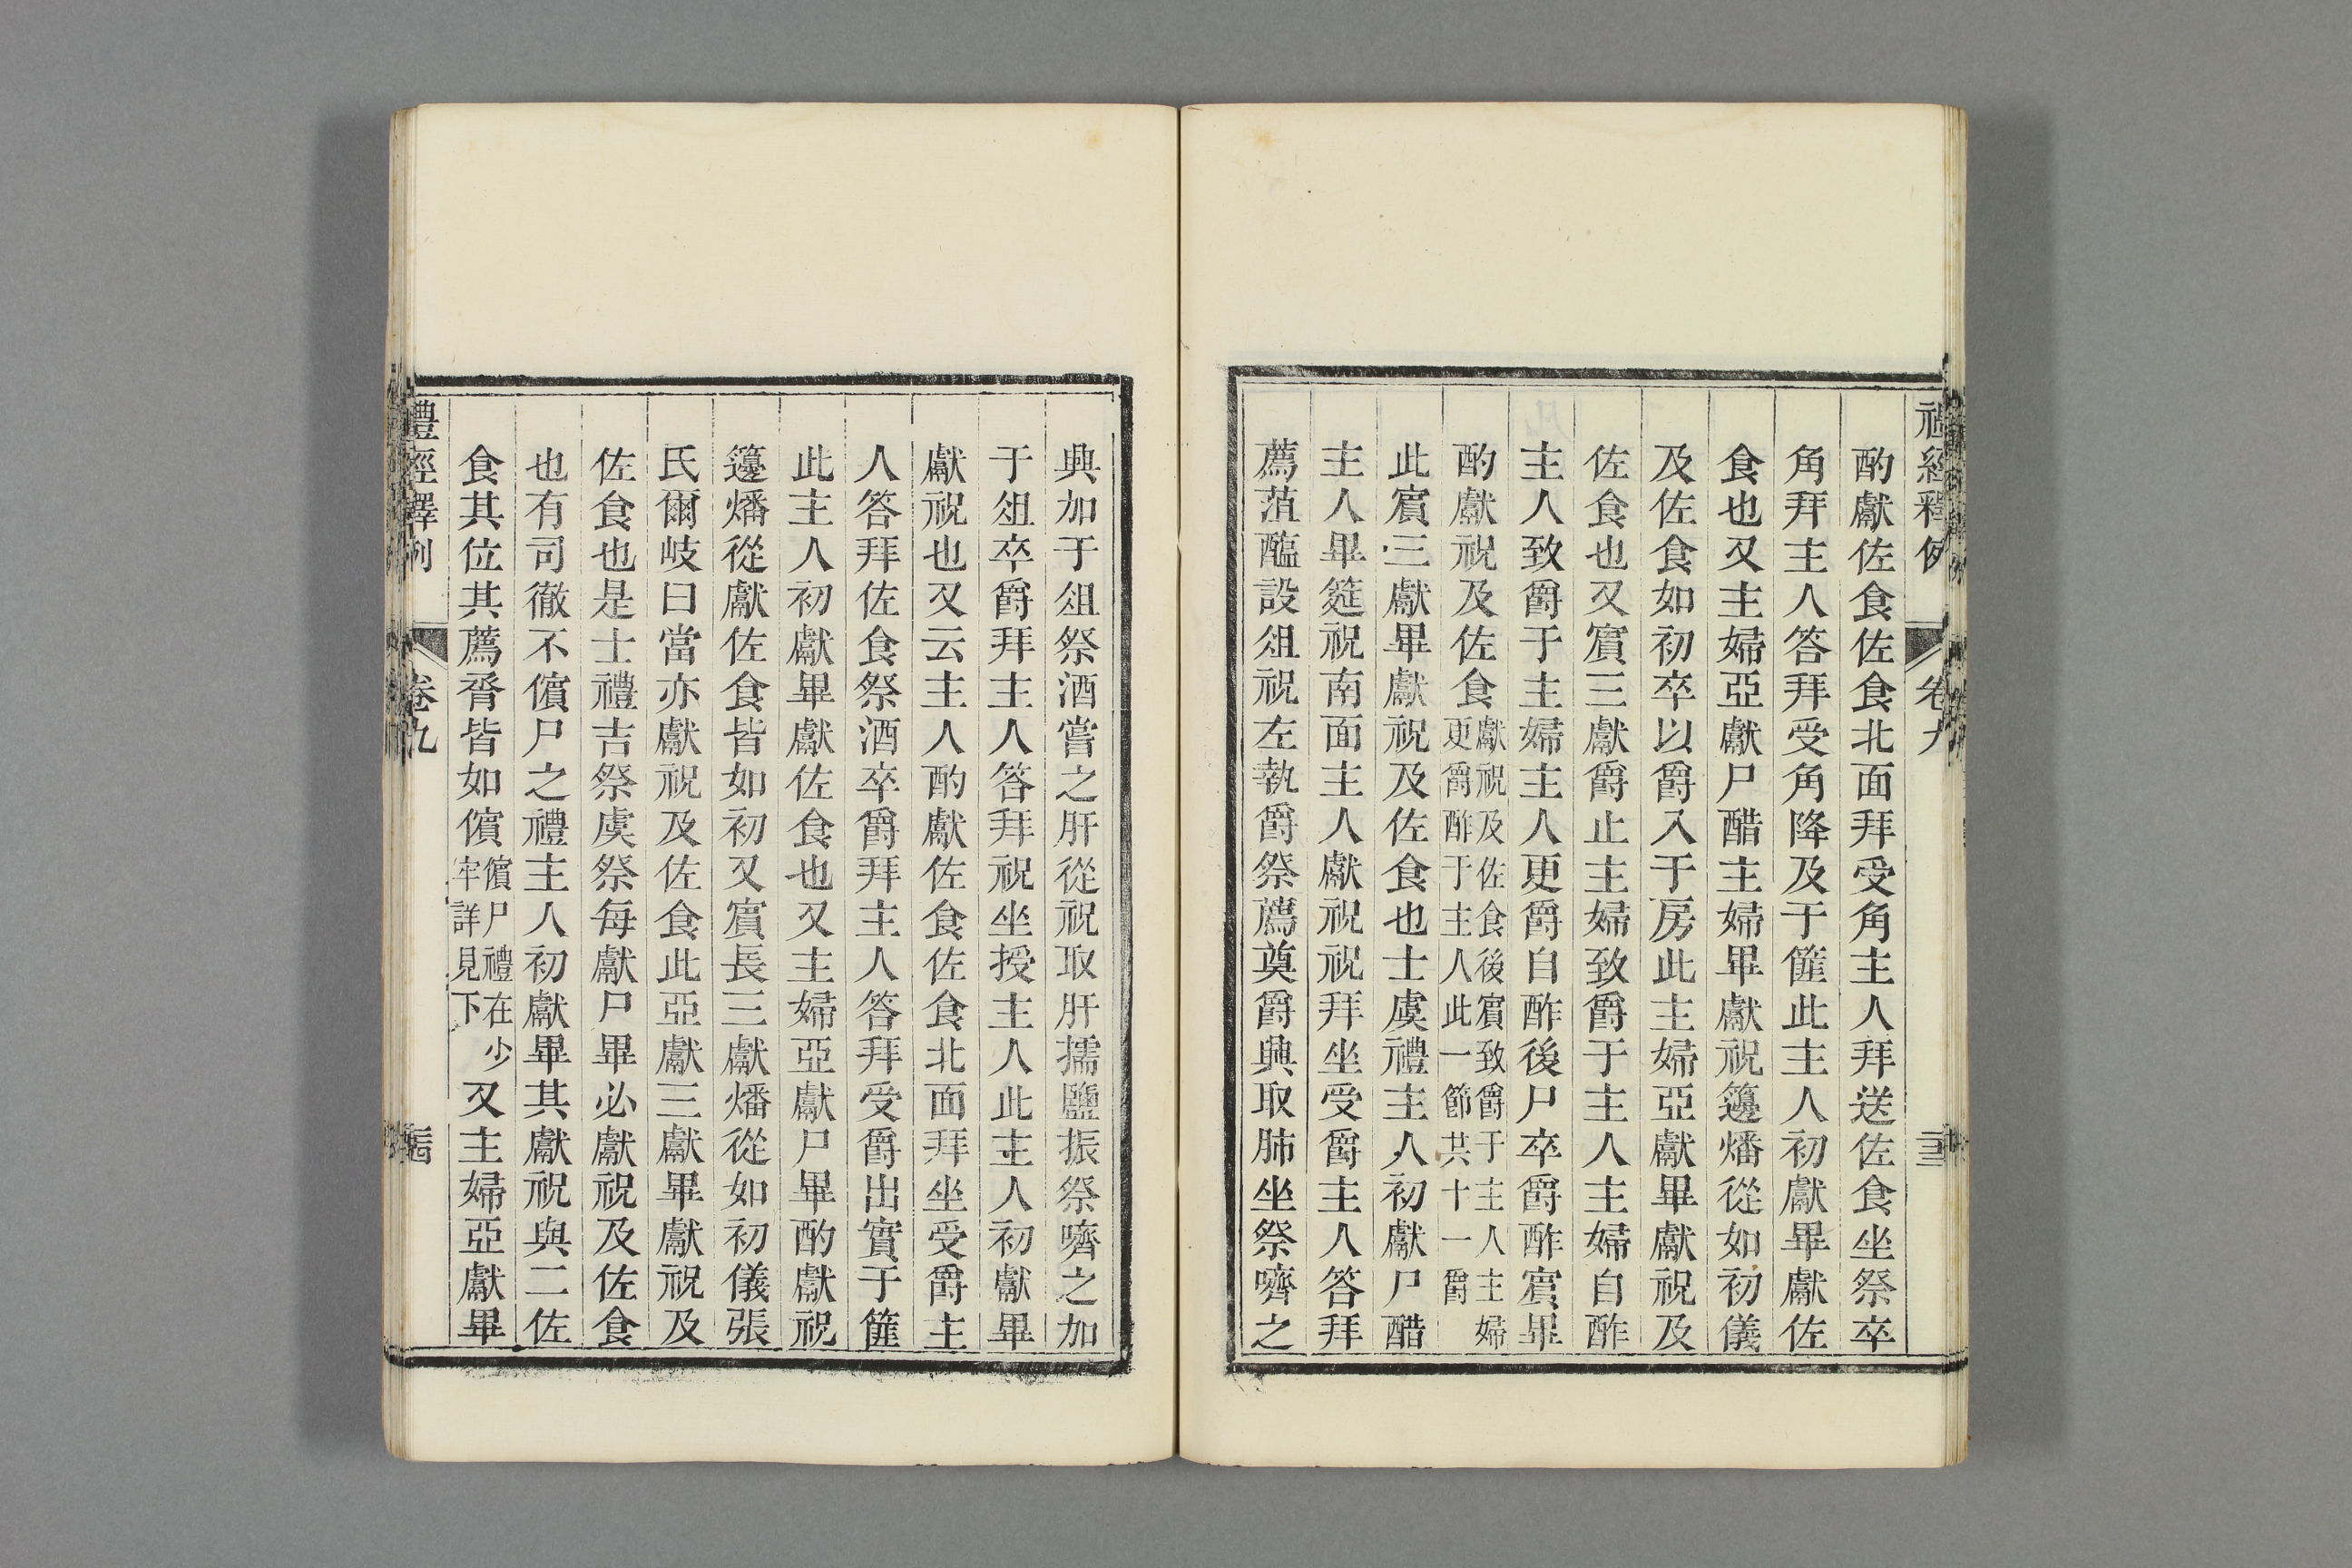 禮經釋例 卷九
酌獻佐食佐食北面拜受角主人拜送佐食坐祭卒
角拜主人答拜受角降及于篚此主人初獻畢獻佐
食也又主婦亞獻尸醋主婦畢獻祝籩燔從如初儀
及佐食如初卒以爵入于房此主婦亞獻畢獻祝及
佐食也又賔三獻爵止主婦致爵于主人主婦自酢
主人致爵于主婦主人更爵自酢後尸卒爵酢賔畢
酌獻祝及佐食獻祝及佐食後賔致爵于主人主婦更爵酢于主人此一節共十一爵
此賔三獻畢獻祝及佐食也士虞禮主人初獻尸醋
主人畢筵祝南面主人獻祝祝拜坐受爵主人答拜
薦菹醢設俎祝左執爵祭薦奠爵興取肺坐祭嚌之
興加于俎祭酒嘗之肝從祝取肝擩鹽振祭嚌之加
于俎卒爵拜主人答拜祝坐授主人此主人初獻畢
獻祝也又云主人酌獻佐食佐食北面拜坐受爵主
人答拜佐食祭酒卒爵拜主人答拜受爵出實于篚
此主人初獻畢獻佐食也又主婦亞獻尸畢酌獻祝
籩燔從獻佐食皆如初又賔長三獻燔從如初儀張
氏爾岐曰當亦獻祝及佐食此亞獻三獻畢獻祝及
佐食也是士禮吉祭虞祭每獻尸畢必獻祝及佐食
也有司徹不儐尸之禮主人初獻畢其獻祝與二佐
食其位其薦脀皆如儐儐尸禮在少牢詳見下又主婦亞獻畢
禮經釋例 卷九